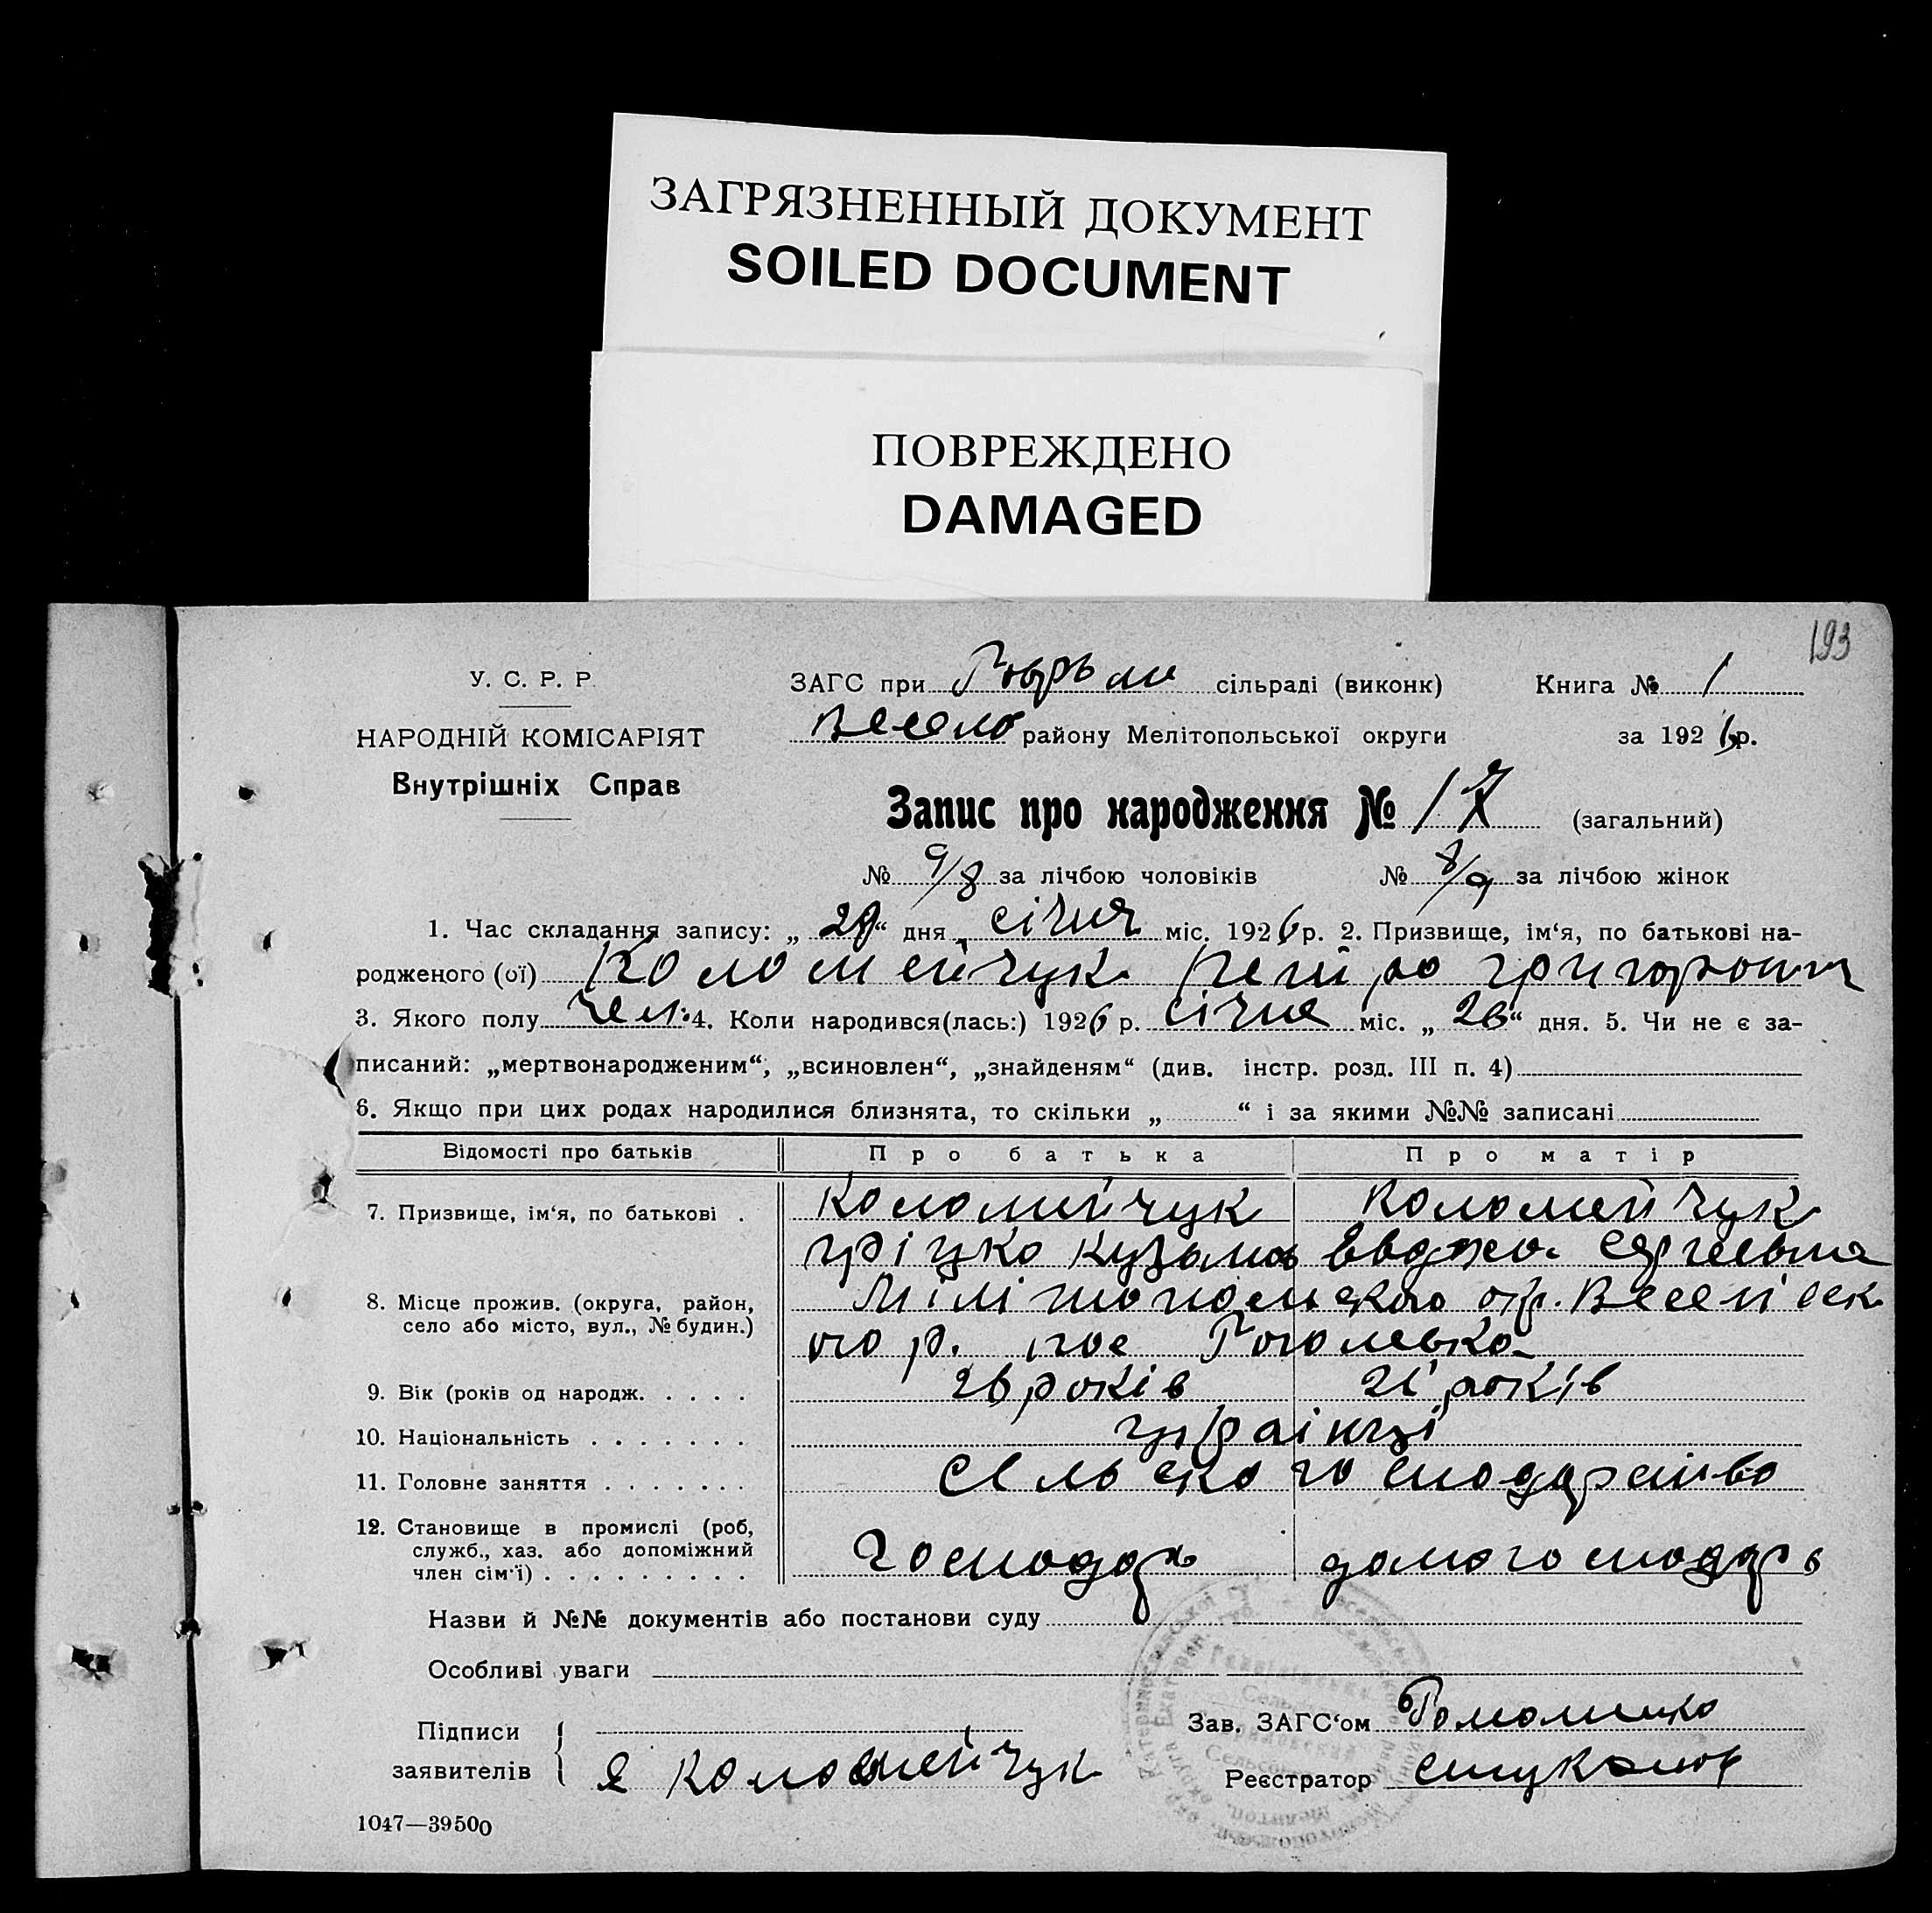 ЗАГРЯЗНЕННЫЙ ДОКУМЕНТ
SOILED DOCUMENT
ПОВРЕЖДЕНО
DAMAGED
193
У. С. Р. Р.
НАРОДНІЙ КОМІСАРІЯТ
Внутрішніх Справ
ЗАГС при сільраді (виконк) Книга № 1
Весело району Мелітопольської округи за 1926 р.
Запис про народження № 17 (загальний)
№ 9/8 за лічбою чоловіків № 8/9 за лічбою жінок
1. Час складання запису: „ 28 “ дня січня міс. 1926 р. 2. Призвище, ім‘я, по батькові на-
родженого (ої) Коломейчук Петро
3. Якого полу чел. 4. Коли народився(лась:) 1926 р. січня міс. „ “ дня. 5. Чи не є за-
писаний: „мертвонародженим“, „всиновлен“, „знайденям“ (див. інстр. розд. III п. 4)
6. Якщо при цих родах народилися близнята, то скільки „ “ і за якими №№ записані
Відомості про батьків Про батька Про матір
7. Призвище, ім‘я, по батькові . Коломийчук Коломейчук
гріцко Кузьмов Евдок. Сергеевна
8. Місце прожив. (округа, район,
село або місто, вул., № будин.)
окр. Веселівск
ого р. пос
9. Вік (років од народж. . . . . 26 років 21 років
10. Національність . . . . . . . українці
11. Головне заняття . . . . . . . сельско господарство
12. Становище в промислі (роб,
служб., хаз. або допоміжний
член сім‘ї) . . . . . . . . . господарь домогосподарь
Назви й №№ документів або постанови суду
Особливі уваги
Підписи
заявителів Я Коломейчук
Зав. ЗАГС‘ом
Реєстратор
1047—39500